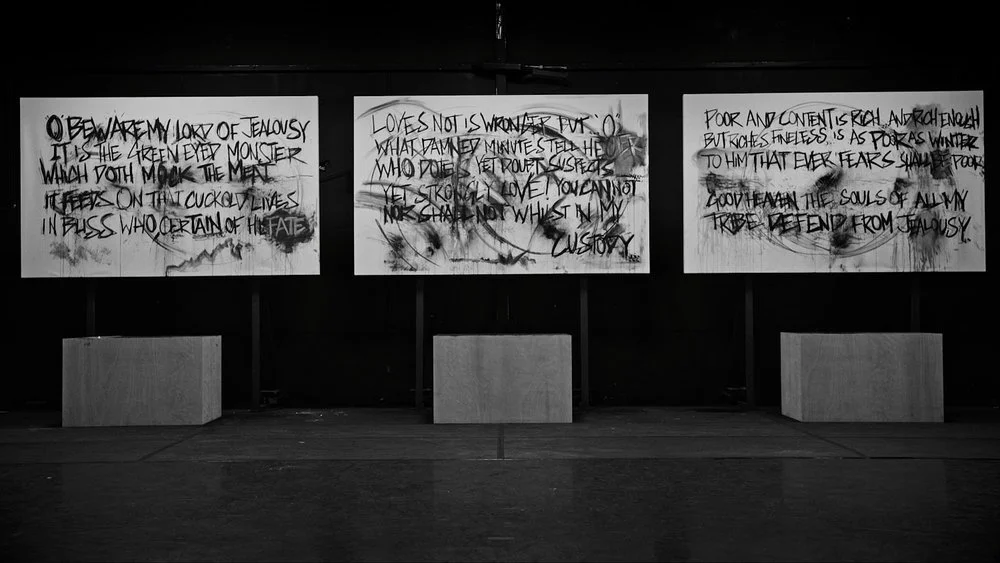 'O' BEWARE MY LORD OF JEALOUSY
IT IS THE GREEN EYED MONSTER
WHICH DOTH MOCK THE MEAT
IT FEEDS ON THAT CUCKOLD LIVES
IN BLISS WHO CERTAIN OF HIS FATE
LOVES NOT IS WRONGER BUT 'O'
WHAT DAMNED MINUTES TELL HE
WHO DOTES YET DOUBT SUSPECTS
YET STRONGLY LOVE! YOU CANNOT
NOR SHALL NOT WHILST IN MY
CUSTODY
POOR AND CONTENT IS RICH, AND RICH ENOUGH
BUT RICHES FINELESS.. IS AS POOR AS WINTER
TO HIM THAT EVER FEARS SHALL BE POOR
GOOD HEAVEN THE SOULS OF ALL MY
TRIBE DEFEND FROM JEALOUSY.